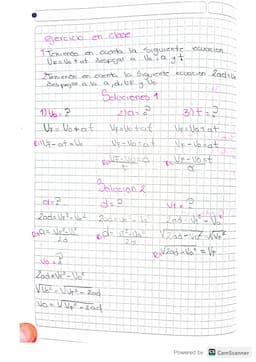 Ejercicio en clase
1 Teniendo en cuenta la siguiente ecuacion
VF=Vo+at despejar a Vo, a y t
2 Teniendo en cuenta la siguiente ecuacion 2ad=
despejar a la a, d, VF y Vo
Soluciones 1
1) Vo=? 2) a=? 3) t=?
VF=Vo+at VF=Vo+at VF=Vo+at
VF-at=Vo VF-Vo=at VF-Vo=at
VF-Vo=a VF-Vo=t
t a
Solucion 2
a=? d=? VF=?
2ad=VF²-Vo² 2ad=VF²-Vo² 2ad=VF²-Vo²
R/a=VF²-Vo² R/d=VF²-Vo² √2ad+Vo²=√VF²
2d 2a R/√2ad+Vo²=VF
Vo=?
2ad=VF²-Vo²
√Vo²=√VF²-2ad
Vo=√VF²-2ad
Powered by CS CamScanner